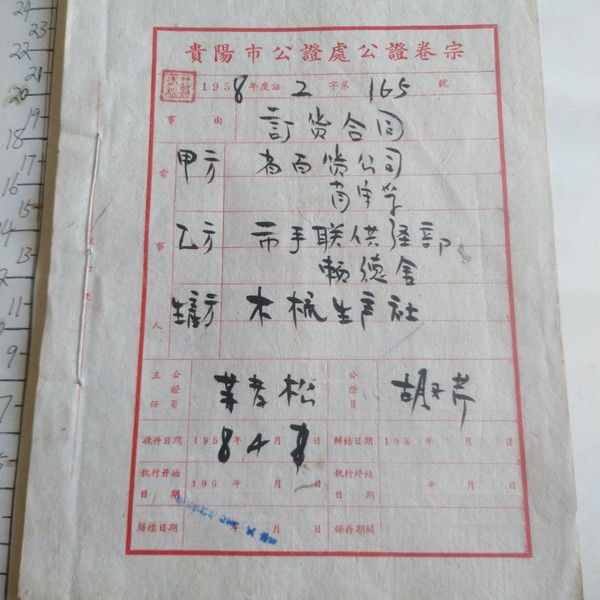 貴陽市公證處公證卷宗
1958年度証2字第165號
事由 訂货合同
當事人
甲方 省百货公司
乙方 市手联供经部
德舍
生產方 木梳生产社
主任公證員 松 公證員 胡
收件日期 1958年4月日 辦結日期 195 年 月 日
執行开始日期 195 年 月 日 執行終結日期 年 月 日
歸檔日期 年 月 日 保存期間